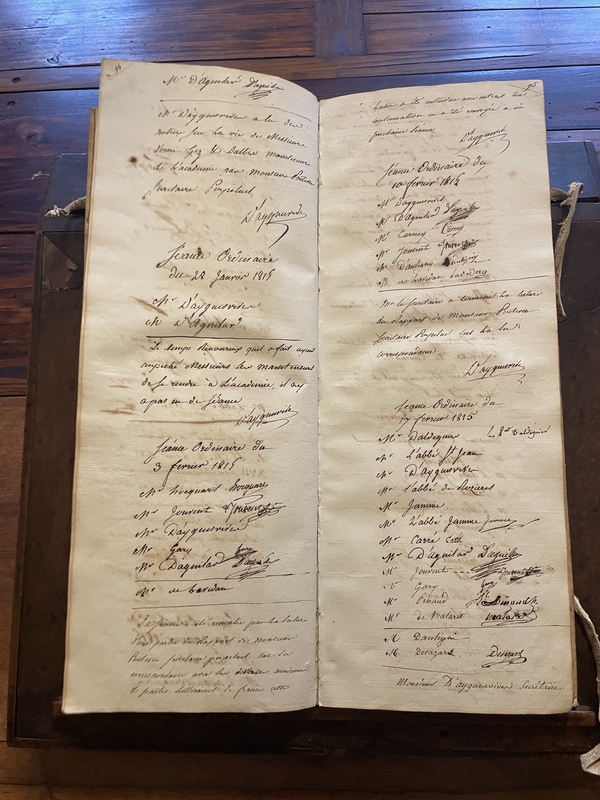 Mr D'aguilar D'aguilar
Mr D'ayguesvives a lu
notice sur la vie de Messieurs
mainteneurs
de L'académie par Monsieur Poitevin
Secrétaire Perpétuel
D'ayguesvives
Séance Ordinaire
du 28 Janvier 1815
Mr D'ayguesvives
Mr D'Aguilar
Le temps Rigoureux qu'il a fait ayant
empêché Messieurs les mainteneurs
de se rendre à L'académie, il n'y
a pas eu de séance
D'ayguesvives
Séance Ordinaire du
3 fevrier 1815
Mr hocquart hocquart
Mr Jouvent Jouvent
Mr D'ayguesvives
Mr Gary Gary
Mr Daguilar Daguilar
Mr de
La séance a été remplie par la lecture
d'une partie du Rapport de monsieur
Poitevin Secrétaire perpétuel sur sa
correspondance avec les académies
de france
95
lecture a été entendue avec interet
continuation en a été renvoyée a la
prochaine séance
D'ayguesvives
Séance Ordinaire du
10 fevrier 1815
Mr D'ayguesvives
Mr D'Aguilar D'aguilar
Mr Carney Carney
Mr Jouvent Jouvent
Mr
Mr le Secrétaire a terminé la lecture
du Rapport de Monsieur Poitevin
Secrétaire Perpétuel sur sa
correspondance
D'ayguesvives
Séance Ordinaire du
17 fevrier 1815
Mr Daldeguier
Mr L'abbé St Jean
Mr D'ayguesvives
Mr l'abbé de Rozieres
Mr Jamme
Mr L'abbé Jamme jamme
Mr Carré
Mr D'aguilar D'aguilar
Mr Jouvent Jouvent
Mr Gary Gary
Mr Pinaud Pinaud
Mr de Malaret Malaret
Mr
Mr Desazars Desazars
Monsieur D'ayguesvives Secrétaire